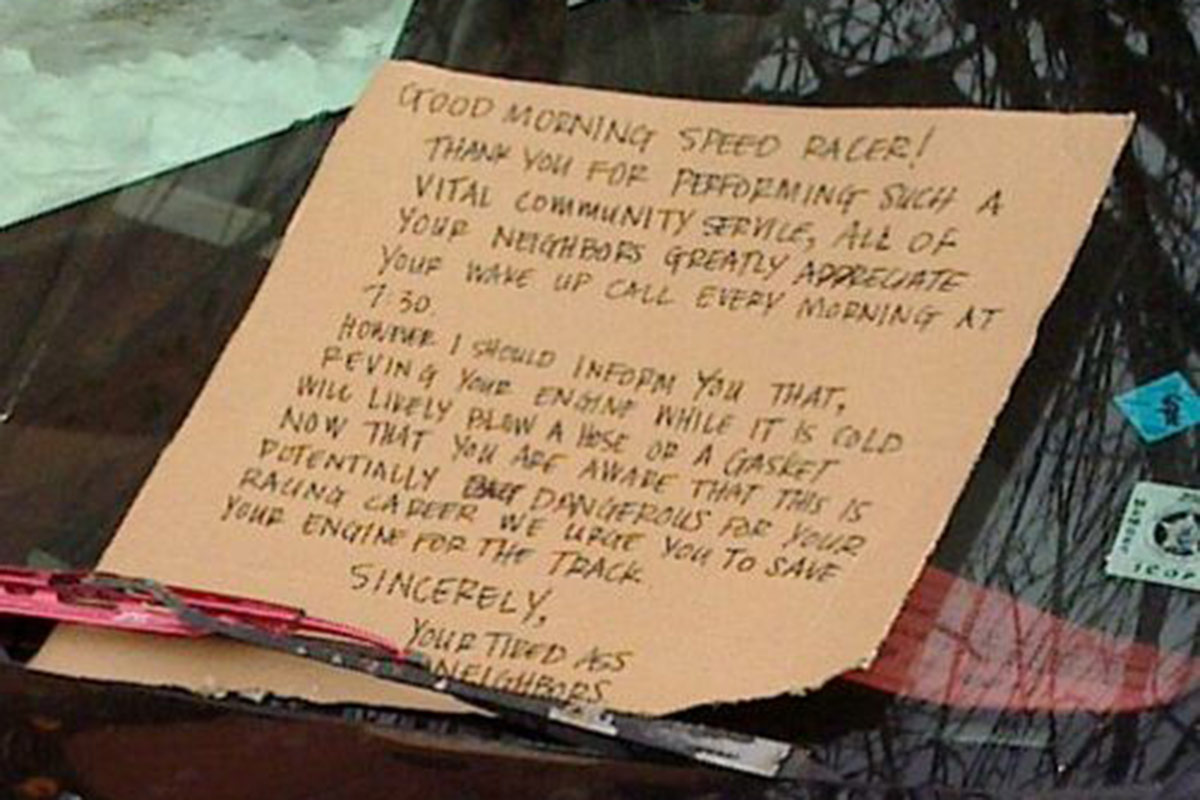 GOOD MORNING SPEED RACER!
THANK YOU FOR PERFORMING SUCH A
VITAL COMMUNITY SERVICE, ALL OF
YOUR NEIGHBORS GREATLY APPRECIATE
YOUR WAKE UP CALL EVERY MORNING AT
7:30
HOWEVER I SHOULD INFORM YOU THAT,
REVING YOUR ENGINE WHILE IT IS COLD
WILL LIKELY BLOW A HOSE OR A GASKET
NOW THAT YOU ARE AWARE THAT THIS IS
POTENTIALLY DANGEROUS FOR YOUR
RACING CAREER WE URGE YOU TO SAVE
YOUR ENGINE FOR THE TRACK
SINCERELY,
YOUR TIRED ASS
NEIGHBORS